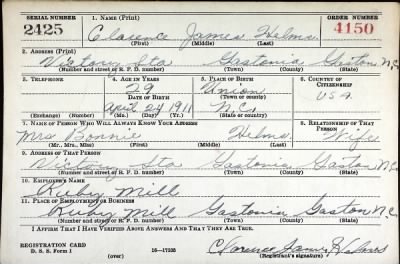 SERIAL NUMBER 1. NAME (Print) ORDER NUMBER
2425 Clarence James Helms 4150
(First) (Middle) (Last)
2. ADDRESS (Print)
Victory Sta Gastonia Gaston N.C.
(Number and street or R. F. D. number) (Town) (County) (State)
3. TELEPHONE 4. AGE IN YEARS 5. PLACE OF BIRTH 6. COUNTRY OF CITIZENSHIP
29 Union U S A
DATE OF BIRTH (Town or county)
April 24 1911 N.C.
(Exchange) (Number) (Mo.) (Day) (Yr.) (State or country)
7. NAME OF PERSON WHO WILL ALWAYS KNOW YOUR ADDRESS 8. RELATIONSHIP OF THAT PERSON
Mrs Bonnie Helms Wife
(Mr., Mrs., Miss) (First) (Middle) (Last)
9. ADDRESS OF THAT PERSON
Victory Sta Gastonia Gaston N.C.
(Number and street or R. F. D. number) (Town) (County) (State)
10. EMPLOYER'S NAME
Ruby Mill
11. PLACE OF EMPLOYMENT OR BUSINESS
Ruby Mill Gastonia Gaston N.C.
(Number and street or R. F. D. number) (Town) (County) (State)
I AFFIRM THAT I HAVE VERIFIED ABOVE ANSWERS AND THAT THEY ARE TRUE.
REGISTRATION CARD
D. S. S. Form 1 16—17105 Clarence James Helms
(over) (Registrant's signature)